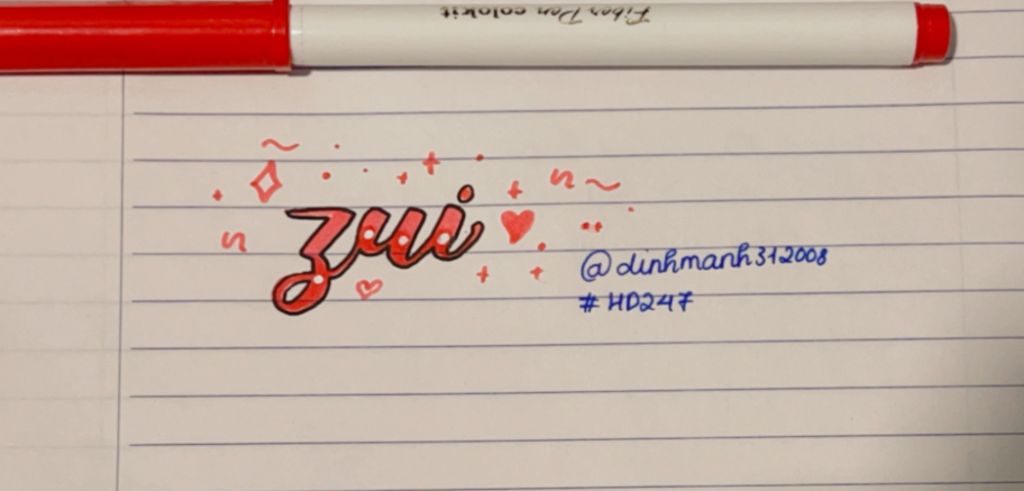 Fiber Pen colokit
zui
@dinhmanh312008
#HD247